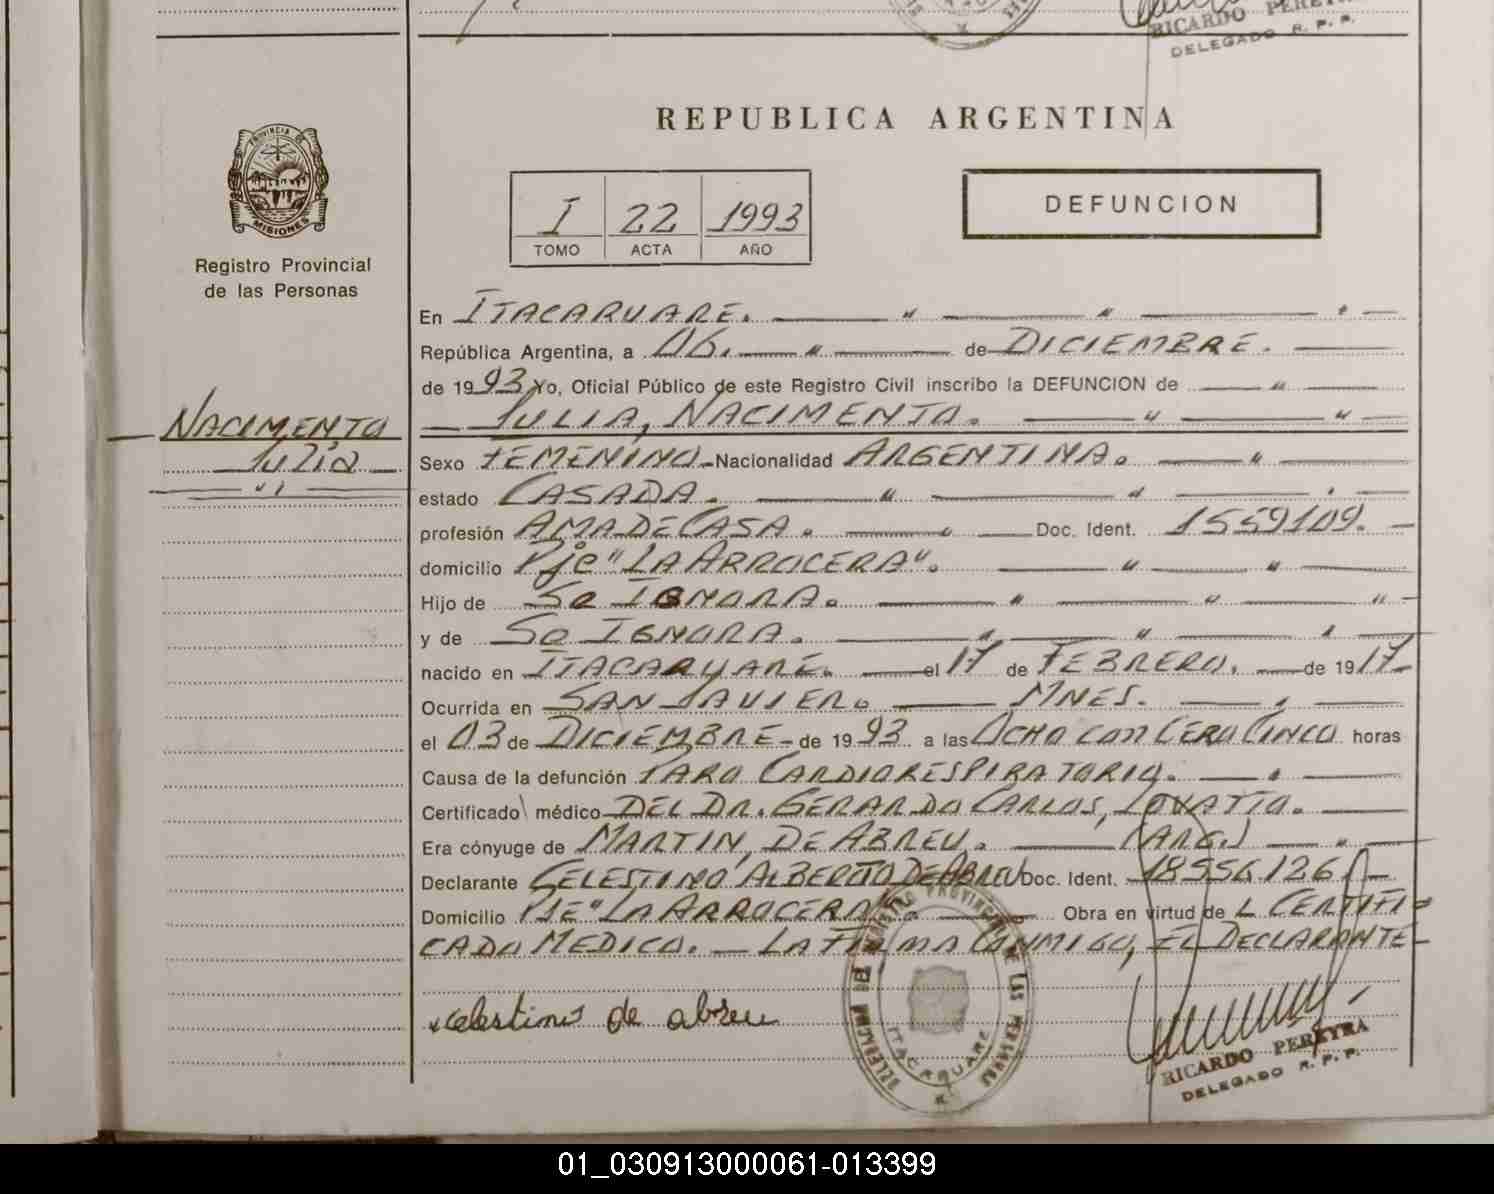 RICARDO PEREYRA
DELEGADO R. P. P.
PROVINCIA DE
MISIONES
Registro Provincial
de las Personas
REPUBLICA ARGENTINA
I 22 1993
TOMO ACTA AÑO
DEFUNCION
En ITACARUARE.
República Argentina, a 06. de DICIEMBRE.
de 1993 Yo, Oficial Público de este Registro Civil inscribo la DEFUNCION de
JULIA, NACIMENTO.
NACIMENTO
Julia
Sexo FEMENINO Nacionalidad ARGENTINA.
estado CASADA.
profesión AMA DE CASA. Doc. Ident. 1559109.
domicilio Pje "LA ARROCERA".
Hijo de Se IGNORA.
y de Se IGNORA.
nacido en ITACARUARE. el 17 de FEBRERO. de 1917
Ocurrida en SAN JAVIER. MNES.
el 03 de DICIEMBRE de 1993 a las OCHO CON CERO CINCO horas
Causa de la defunción PARO CARDIORESPIRATORIO.
Certificado médico DEL DR. GERARDO CARLOS, LOVATTO.
Era cónyuge de MARTIN, DE ABREU. (ARG.)
Declarante CELESTINO ALBERTO DE ABREU Doc. Ident. 18556126
Domicilio PJE "LA ARROCERA". Obra en virtud de L CERTIFI-
CADO MEDICO. LA FIRMA CONMIGO, EL DECLARANTE
celestino de abreu
DELEGACION DEL REGISTRO PROVINCIAL DE LAS PERSONAS
ITACARUARE
RICARDO PEREYRA
DELEGADO R. P. P.
01_030913000061-013399